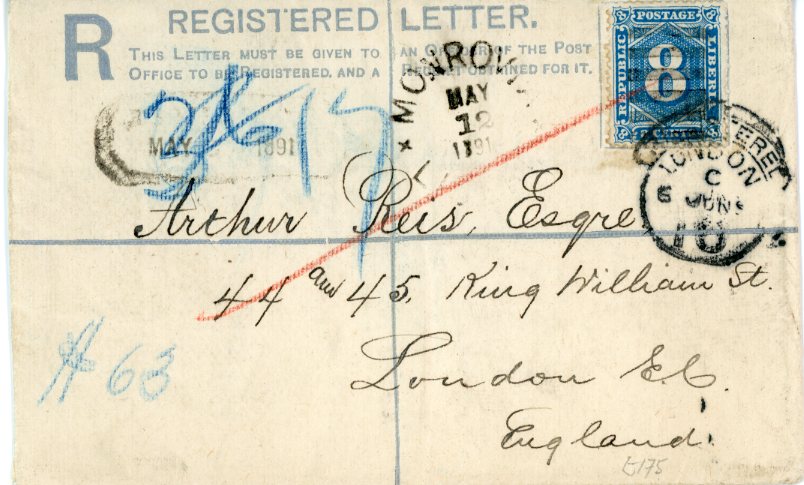 R
REGISTERED LETTER.
THIS LETTER MUST BE GIVEN TO AN OFFICER OF THE POST
OFFICE TO BE REGISTERED, AND A RECEIPT OBTAINED FOR IT.
8 POSTAGE 8
REPUBLIC
8
LIBERIA
MONROVIA
MAY
12
1891
MAY 1891
REGISTERED
LONDON
C
6 JUN
Arthur Reis, Esqre
44 and 45, King William St.
London E.C.
England
# 63
£175